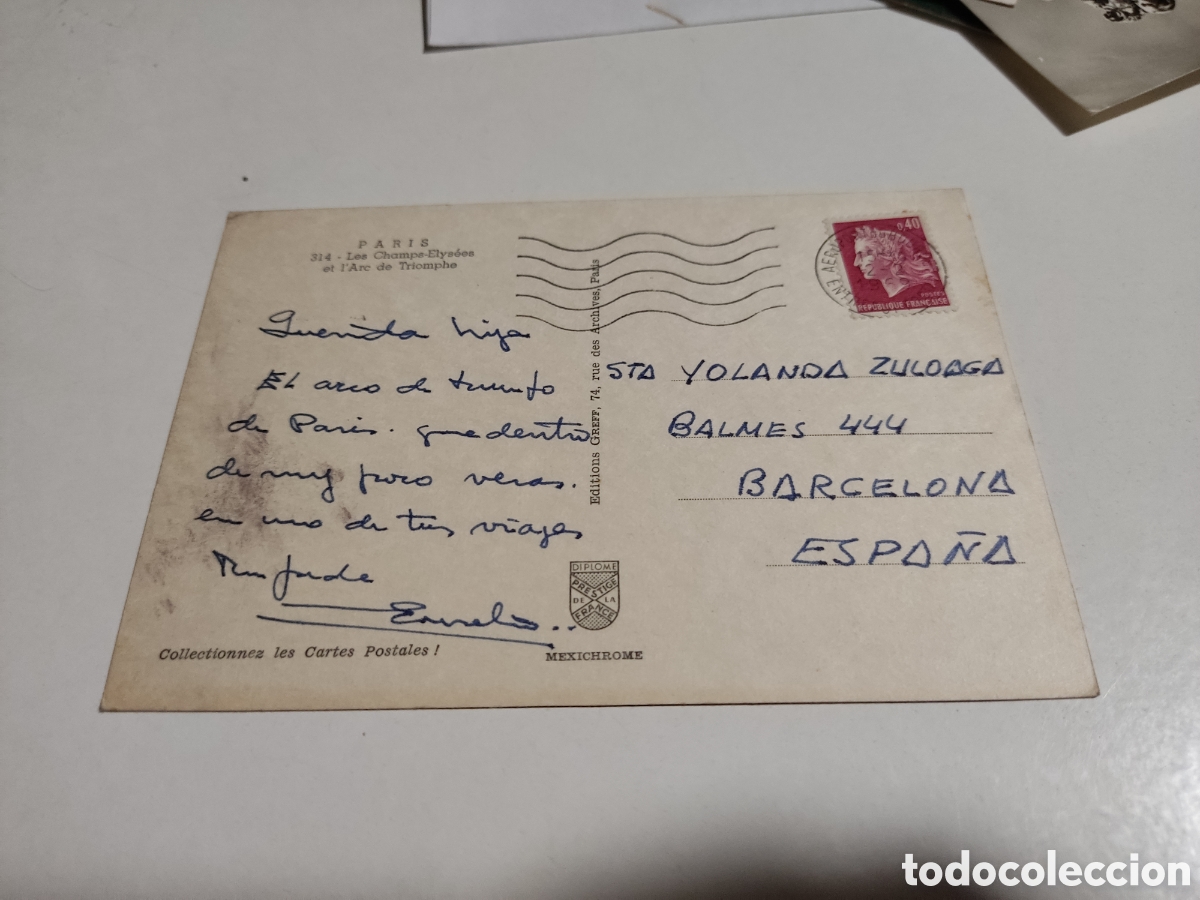 PARIS
314 - Les Champs-Elysées
et l'Arc de Triomphe
Querida hija
El arco de triunfo
de Paris. que dentro
de muy poco veras.
en uno de tus viages
Tu padre
Editions GREFF, 74, rue des Archives, Paris
0,40
POSTES
REPUBLIQUE FRANÇAISE
STA YOLANDA ZULOAGA
BALMES 444
BARCELONA
ESPAÑA
DIPLOME
PRESTIGE
DE LA
FRANCE
Collectionnez les Cartes Postales !
MEXICHROME
todocoleccion